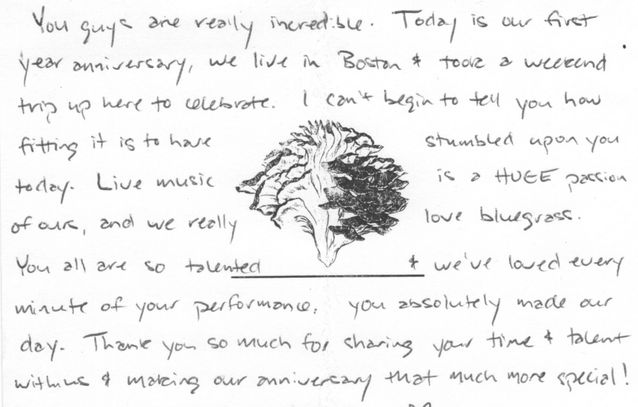 You guys are really incredible. Today is our first
year anniversary, we live in Boston & took a weekend
trip up here to celebrate. I can't begin to tell you how
fitting it is to have stumbled upon you
today. Live music is a HUGE passion
of ours, and we really love bluegrass.
You all are so talented & we've loved every
minute of your performance, you absolutely made our
day. Thank you so much for sharing your time & talent
with us & making our anniversary that much more special!